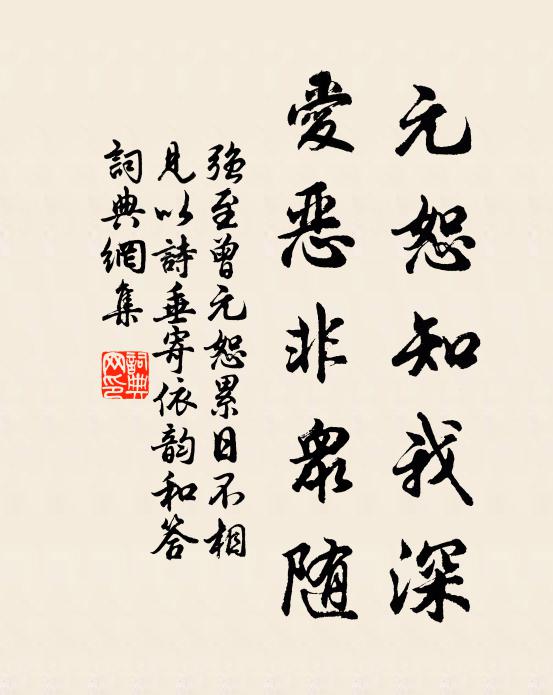 元恕知我深
愛惡非衆随
強至曾元恕累日不相
見以詩垂寄依韵和答
詞典網集
詞典网印